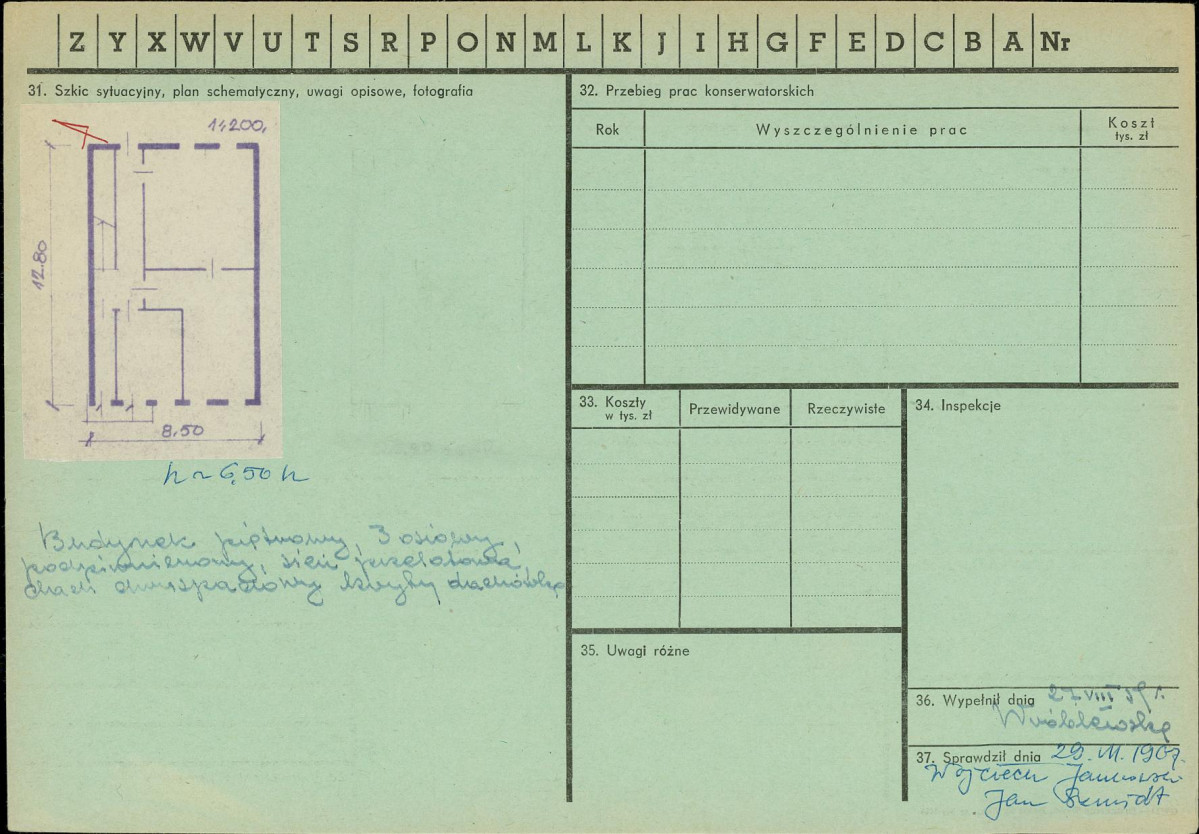 Z Y X W V U T S R P O N M L K J I H G F E D C B A Nr
31. Szkic sytuacyjny, plan schematyczny, uwagi opisowe, fotografia
1:200.
12.80
8.50
h ~ 6,50 m
Budynek piętrowy, 3 osiowy,
podpiwniczony, sień przelotowa,
dach dwuspadowy kryty dachówką
32. Przebieg prac konserwatorskich
Rok
Wyszczególnienie prac
Koszt
tys. zł
33. Koszty
w tys. zł
Przewidywane
Rzeczywiste
34. Inspekcje
35. Uwagi różne
36. Wypełnił dnia 27 VIII 59 r.
Wróblewska
37. Sprawdził dnia 29. VII. 1967.
Wojciech
Jan